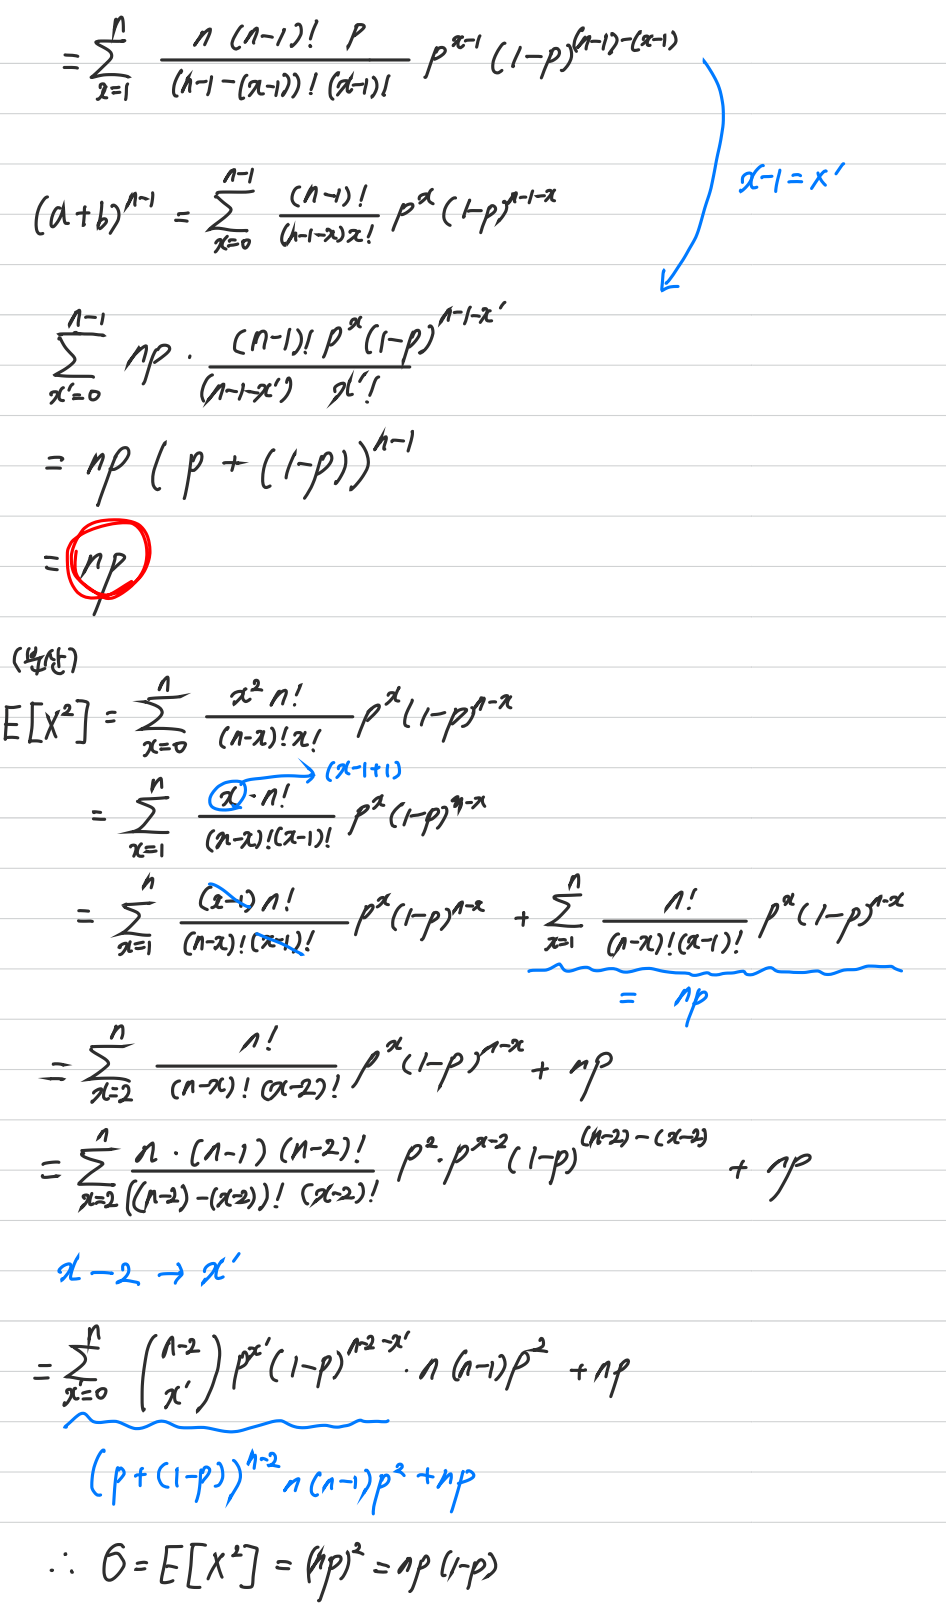 = \sum_{x=1}^{n} \frac{n (n-1)! p}{(n-1-(x-1))! (x-1)!} p^{x-1} (1-p)^{(n-1)-(x-1)}
x-1 = x'
(a+b)^{n-1} = \sum_{x=0}^{n-1} \frac{(n-1)!}{(n-1-x) x!} p^x (1-p)^{n-1-x}
\sum_{x'=0}^{n-1} np \cdot \frac{(n-1)! p^x (1-p)^{n-1-x'}}{(n-1-x') x'!}
= np (p + (1-p))^{n-1}
= np
(분산)
E[X^2] = \sum_{x=0}^{n} \frac{x^2 n!}{(n-x)! x!} p^x (1-p)^{n-x}
(x-1+1)
= \sum_{x=1}^{n} \frac{x \cdot n!}{(n-x)! (x-1)!} p^x (1-p)^{n-x}
= \sum_{x=1}^{n} \frac{(x-1) n!}{(n-x)! (x-1)!} p^x (1-p)^{n-x} + \sum_{x=1}^{n} \frac{n!}{(n-x)! (x-1)!} p^x (1-p)^{n-x}
= np
= \sum_{x=2}^{n} \frac{n!}{(n-x)! (x-2)!} p^x (1-p)^{n-x} + np
= \sum_{x=2}^{n} \frac{n \cdot (n-1) (n-2)!}{((n-2)-(x-2))! (x-2)!} p^2 \cdot p^{x-2} (1-p)^{(n-2)-(x-2)} + np
x-2 → x'
= \sum_{x'=0}^{n} \binom{n-2}{x'} p^{x'} (1-p)^{n-2-x'} \cdot n (n-1) p^2 + np
(p+(1-p))^{n-2} n (n-1) p^2 + np
∴ σ = E[X^2] = (np)^2 = np (1-p)